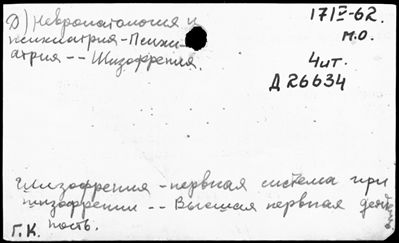 Д) Невропатология и
психиатрия - Психи-
атрия -- Шизофрения.
17 IV-62.
м.о.
4 шт.
Д 26634
Шизофрения - нервная система при
шизофрении -- Высшая нервная деятель
ность.
Г.К.